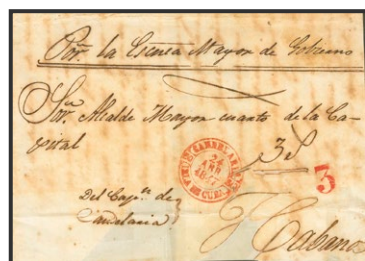 Por. la Escna. Mayor de Gobierno
Sor. Alcalde Mayor cuarto de la Ca-
pital
3
3
Del Capn. de
Candelaria
Habana